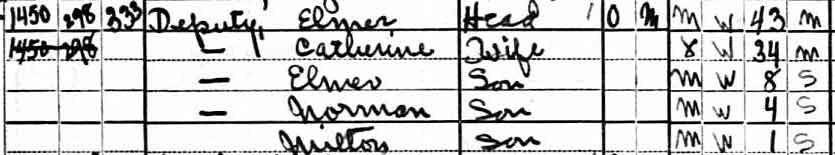 1450 298 333 Deputy, Elmer Head 1 O M M W 43 M
1450 298 — Catherine Wife W 34 M
— Elmer Son M W 8 S
— Norman Son M W 4 S
Milton Son M W 1 S